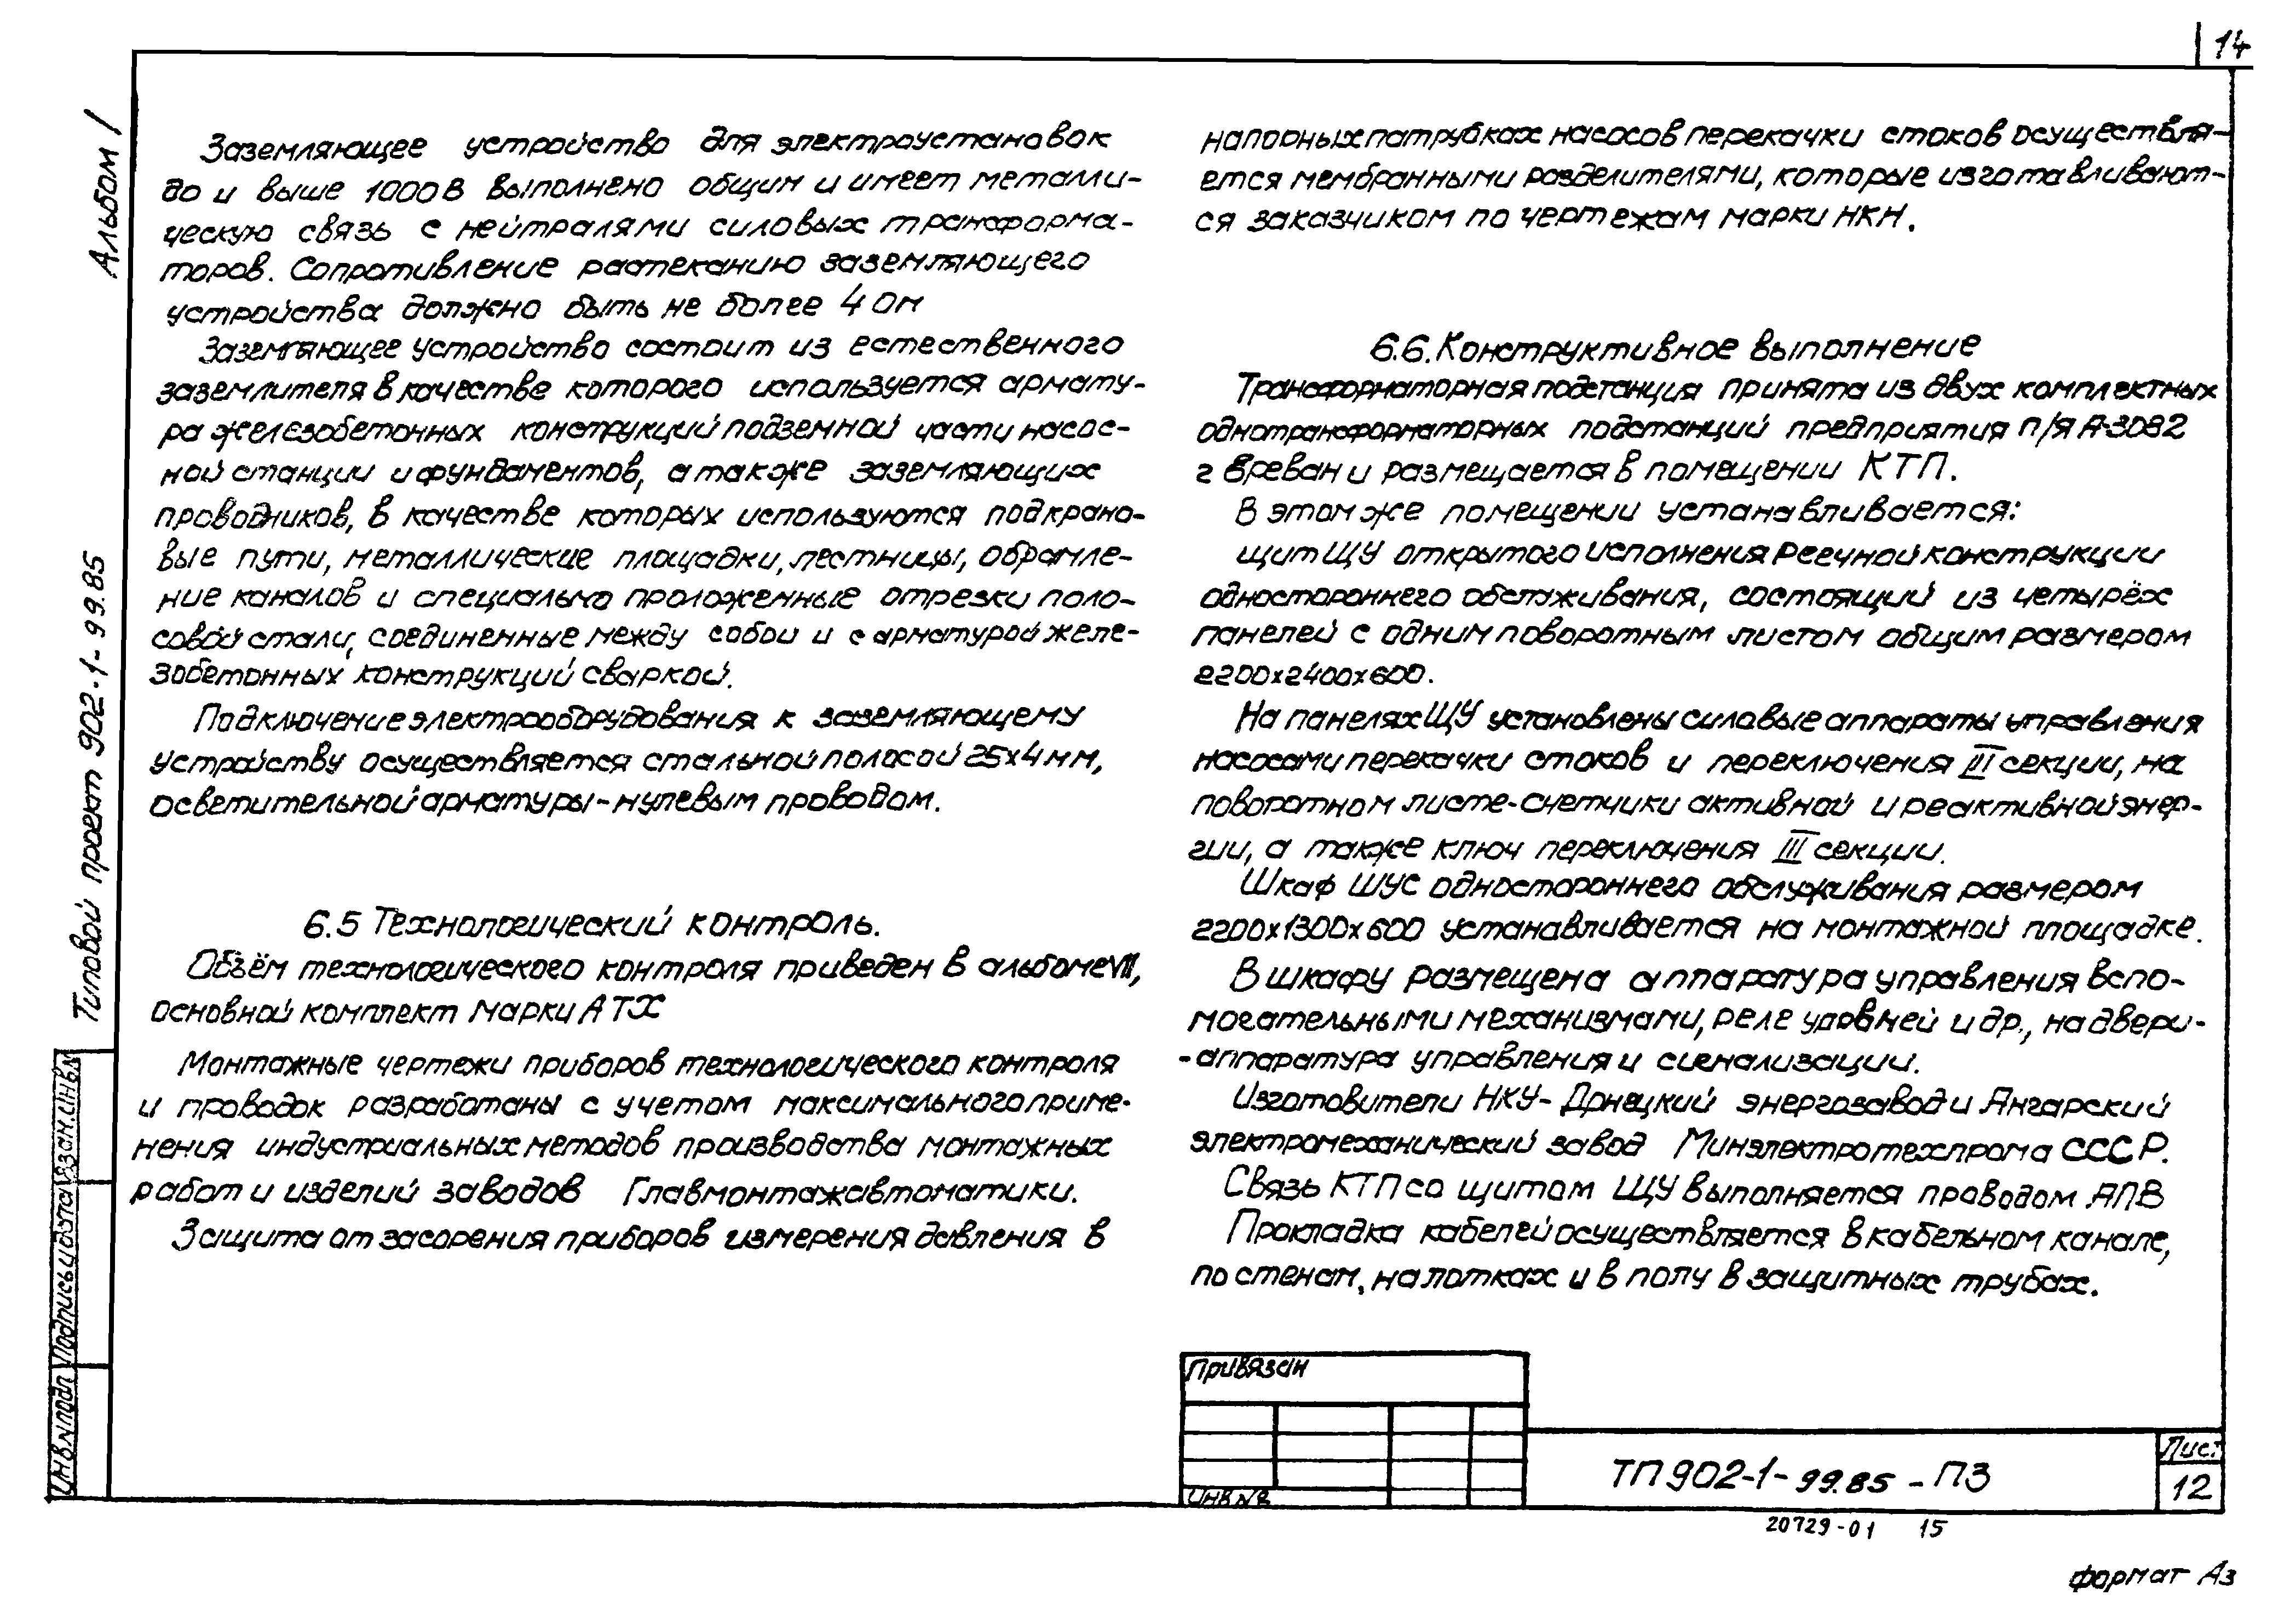 14
Альбом I
Типовой проект 902-1-99.85
Заземляющее устройство для электроустановок
до и выше 1000В выполнено общим и имеет металли-
ческую связь с нейтралями силовых трансформа-
торов. Сопротивление растеканию заземляющего
устройства должно быть не более 4 Ом
Заземляющее устройство состоит из естественного
заземлителя в качестве которого используется армату-
ра железобетонных конструкций подземной части насос-
ной станции и фундаментов, а также заземляющих
проводников, в качестве которых используются подкрано-
вые пути, металлические площадки, лестницы, обрамле-
ние каналов и специально проложенные отрезки поло-
совой стали, соединенные между собой и с арматурой желе-
зобетонных конструкций сваркой.
Подключение электрооборудования к заземляющему
устройству осуществляется стальной полосой 25х4 мм,
осветительной арматуры-нулевым проводом.
6.5 Технологический контроль.
Объём технологического контроля приведен в альбоме VII,
основной комплект марки АТХ
Монтажные чертежи приборов технологического контроля
и проводок разработаны с учетом максимального приме-
нения индустриальных методов производства монтажных
работ и изделий заводов Главмонтажавтоматики.
Защита от засорения приборов измерения давления в
напорных патрубках насосов перекачки стоков осуществля-
ется мембранными разделителями, которые изготавливают-
ся заказчиком по чертежам марки НКН.
6.6. Конструктивное выполнение
Трансформаторная подстанция принята из двух комплектных
однотрансформаторных подстанций предприятия п/я А-3082
г Ереван и размещается в помещении КТП.
В этом же помещении устанавливается:
щит ЩУ открытого исполнения Реечной конструкции
одностороннего обслуживания, состоящий из четырёх
панелей с одним поворотным листом общим размером
2200х2400х600.
На панелях ЩУ установлены силовые аппараты управления
насосами перекачки стоков и переключения III секции, на
поворотном листе-счетчики активной и реактивной энер-
гии, а также ключ переключения III секции.
Шкаф ШУС одностороннего обслуживания размером
2200х1300х600 устанавливается на монтажной площадке.
В шкафу размещена аппаратура управления вспо-
могательными механизмами, реле уровней и др., на двери-
-аппаратура управления и сигнализации.
Изготовители НКУ- Донецкий энергозавод и Ангарский
электромеханический завод Минэлектротехпрома СССР.
Связь КТП со щитом ЩУ выполняется проводом АПВ
Прокладка кабелей осуществляется в кабельном канале,
по стенам, на лотках и в полу в защитных трубах.
Инв N подл
Подпись и дата
Взам. инв. N
Привязан
Инв №
ТП 902-1-99.85 -ПЗ
Лист
12
20729-01 15
формат А3